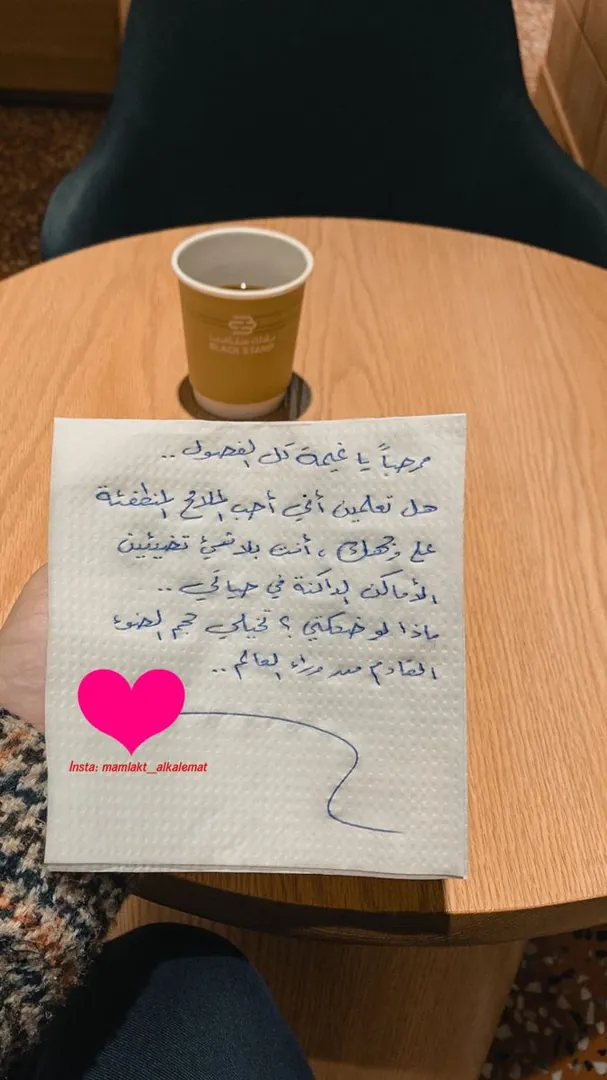 بلاك ستاند
BLACK STAND
مرحباً يا غيمة كل الفصول ..
هل تعلمين أني أحب الملامح المنطفئة
على وجهك ، أنت بلا شيء تضيئين
الأماكن الداكنة في حياتي ..
ماذا لو ضحكتي ؟ تخيلي حجم الضوء
القادم من وراء العالم ..
Insta: mamlakt_alkalemat